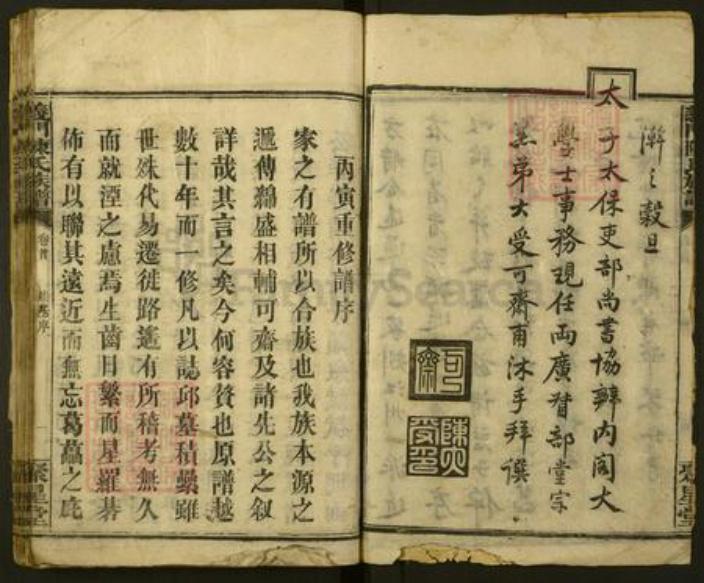 澣之穀旦
太子太保吏部尚書協辦內閣大
學士事務現任兩廣督部堂宗
愚弟大受可齋甫沐手拜譔
可齋
陳大受印
丙寅重修譜序
家之有譜所以合族也我族本源之
遞傳緜盛相輔可齋及諸先公之叙
詳哉其言之矣今何容贅也原譜越
數十年而一修凡以誌邱墓積纍雖
世殊代易遷徙路遙有所稽考無久
而就湮之慮焉生齒日繁而星羅碁
佈有以聯其遠近而無忘葛藟之庇
義門陳氏族譜
卷首
聚星堂
FamilySearch